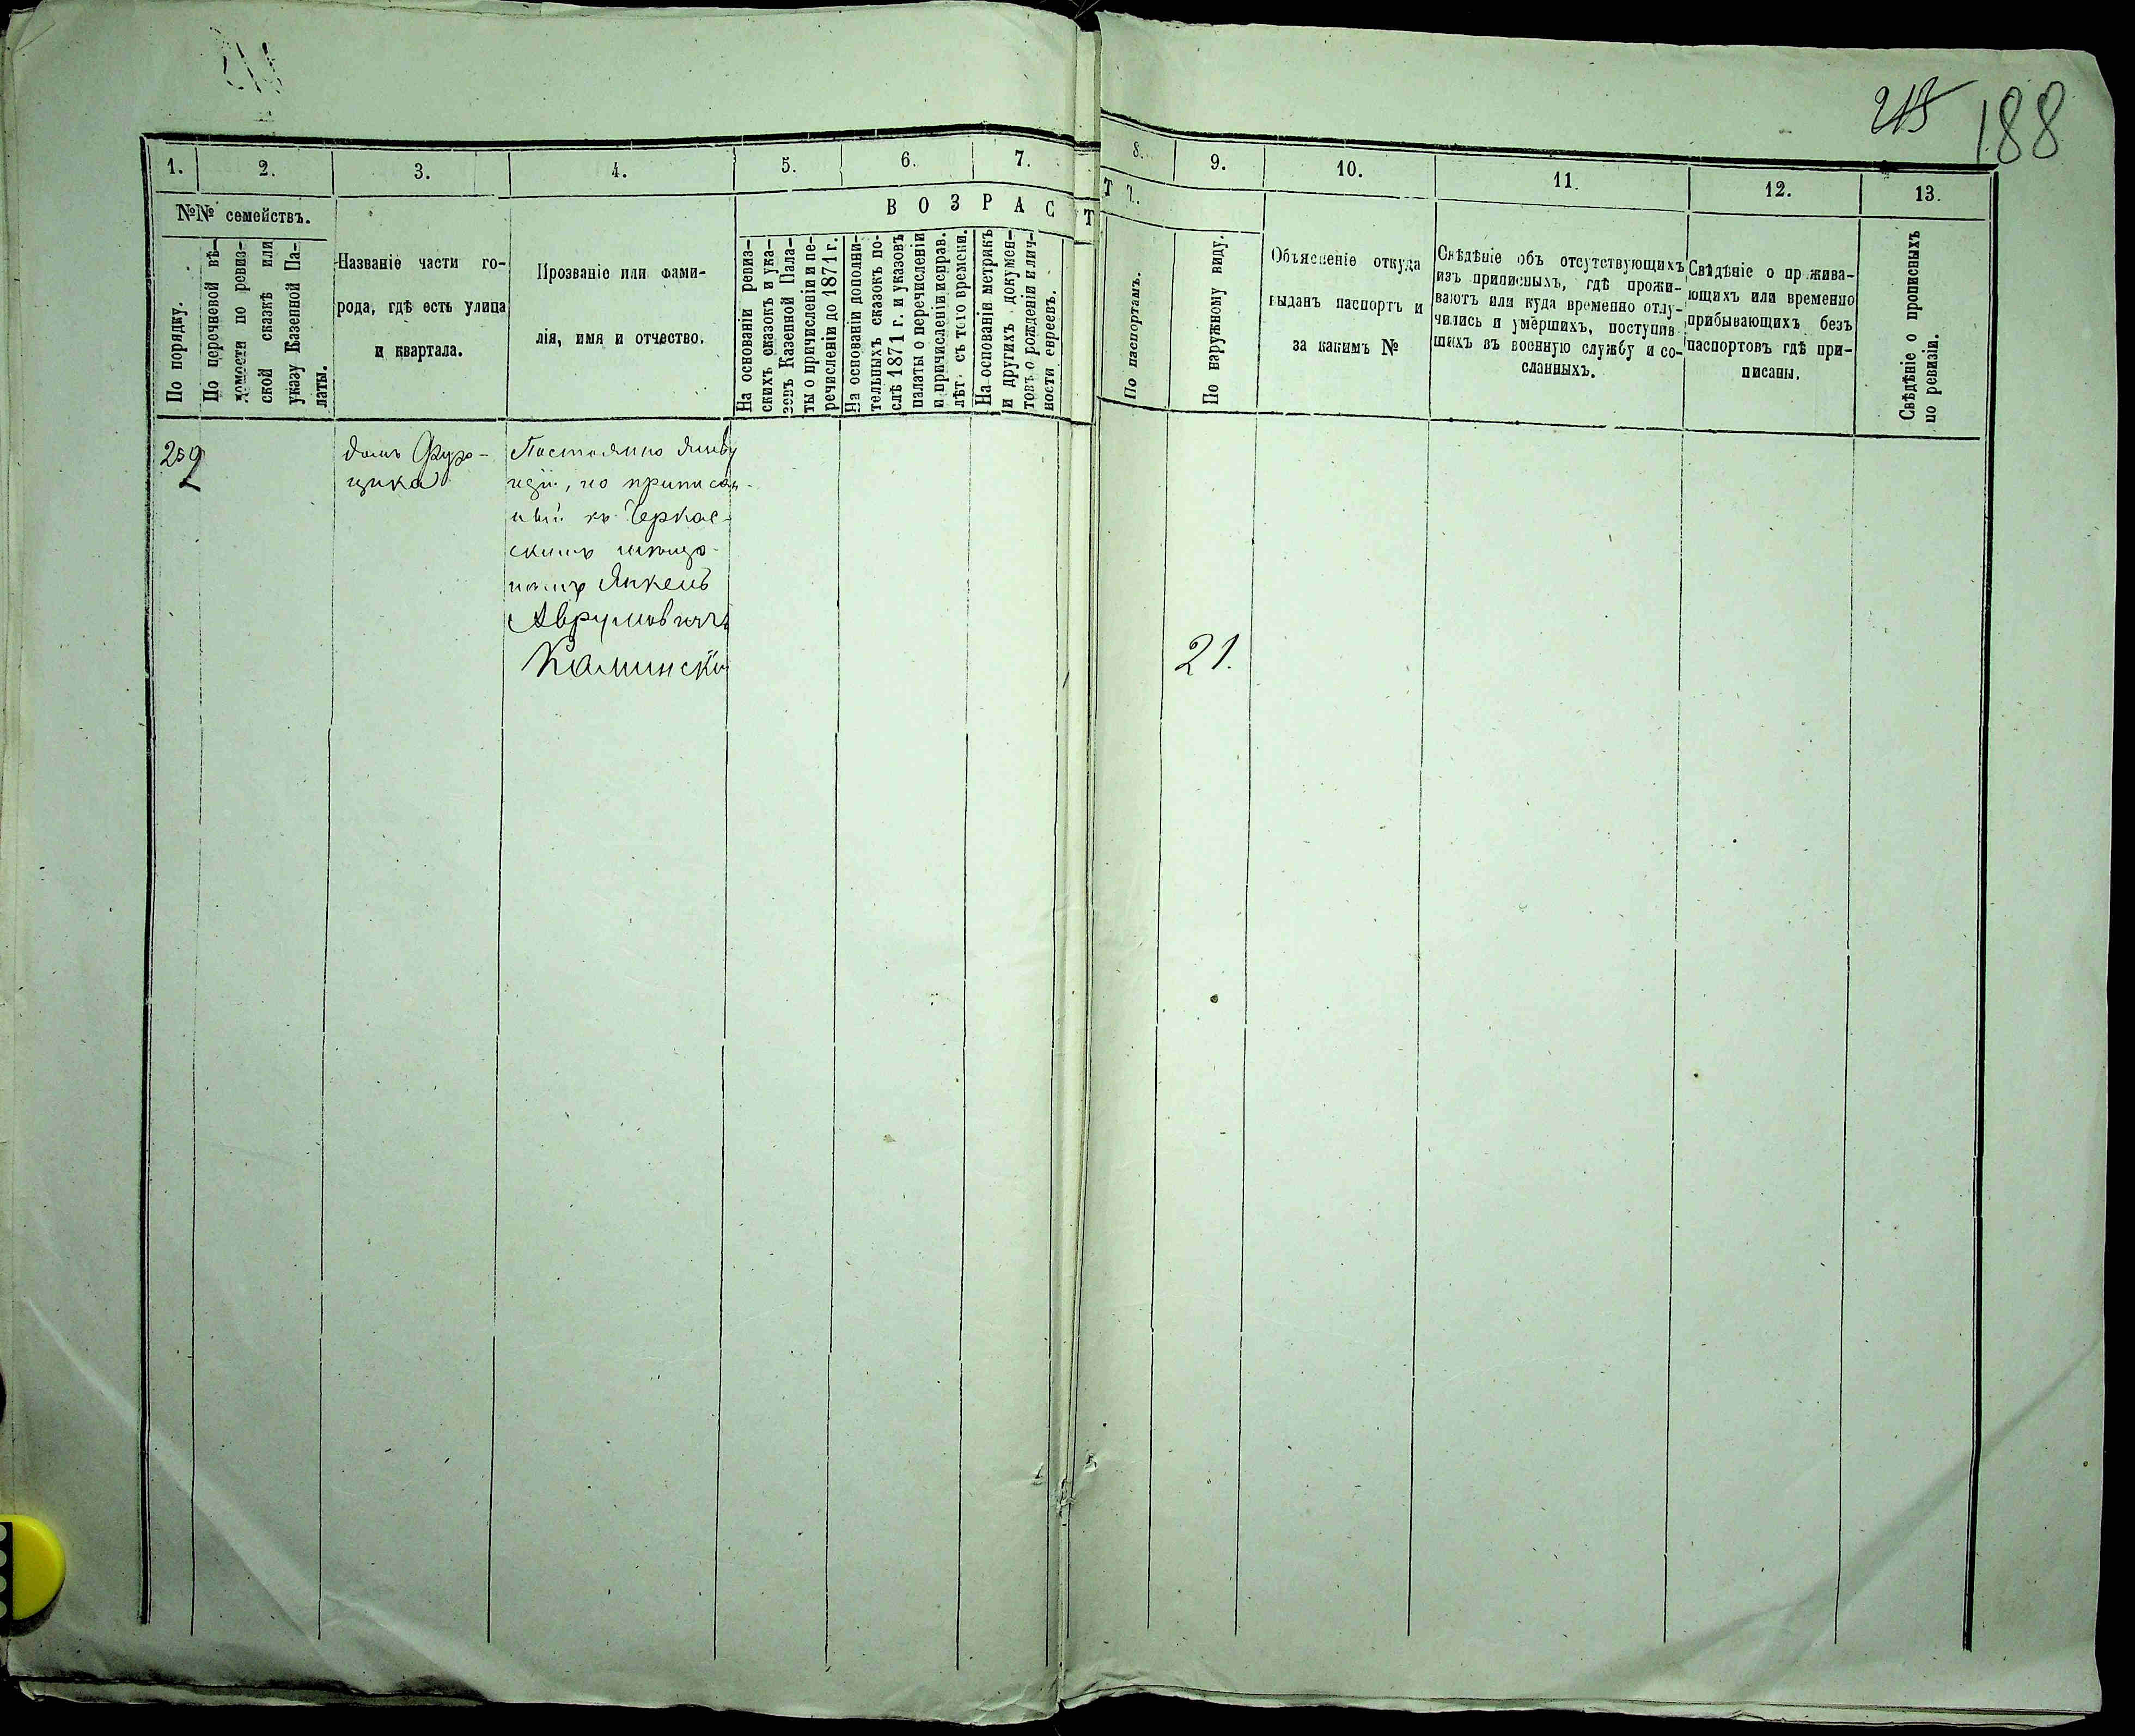 215 188
1. 2. 3. 4. 5. 6. 7. 8. 9. 10. 11. 12. 13.
№№ семействъ.
По порядку.
По перечневой вѣ-
домости по ревиз-
ской сказкѣ или
указу Казенной Па-
латы.
Названіе части го-
рода, гдѣ есть улица
и квартала.
Прозваніе или фами-
лія, имя и отчество.
ВОЗРАСТ
Т Ъ.
На основаніи ревиз-
скихъ сказокъ и ука-
зовъ Казенной Пала-
ты о причисленіи и пе-
речисленіи до 1871 г.
На основаніи дополни-
тельныхъ сказокъ по-
слѣ 1871 г. и указовъ
палаты о перечисленіи
и причисленіи исправ.
лѣт. съ того времени.
На основаніи метрикъ
и другихъ докумен-
товъ о рожденіи и лич-
ности евреевъ.
По паспортамъ.
По наружному виду.
Объясненіе откуда
выданъ паспортъ и
за какимъ №
Свѣдѣніе объ отсутствующихъ
изъ приписныхъ, гдѣ прожи-
ваютъ или куда временно отлу-
чились и умершихъ, поступив-
шихъ въ военную службу и со-
сланныхъ.
Свѣдѣніе о прожива-
ющихъ или временно
прибывающихъ безъ
паспортовъ гдѣ при-
писаны.
Свѣдѣніе о прописныхъ
по ревизіи.
259
домъ
щика
Постоянно живу
щій, но приписан-
ный къ Черкас-
скимъ мѣща-
намъ Янкель
Аврумовичъ
Каминскій
21.